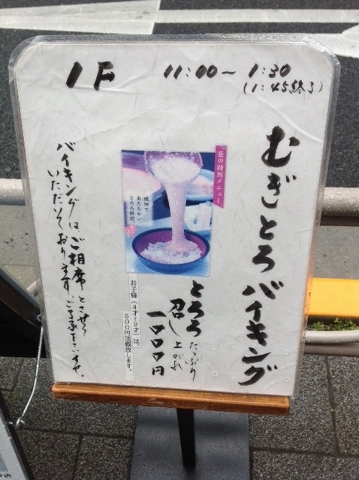 1F 11:00〜1:30
(1:45終了)
むぎとろバイキング
昼の特別メニュー
とろろたっぷり
召し上がれ
一〇〇〇円
バイキングはご相席とさせて
いただいております。ご了承下さいませ。